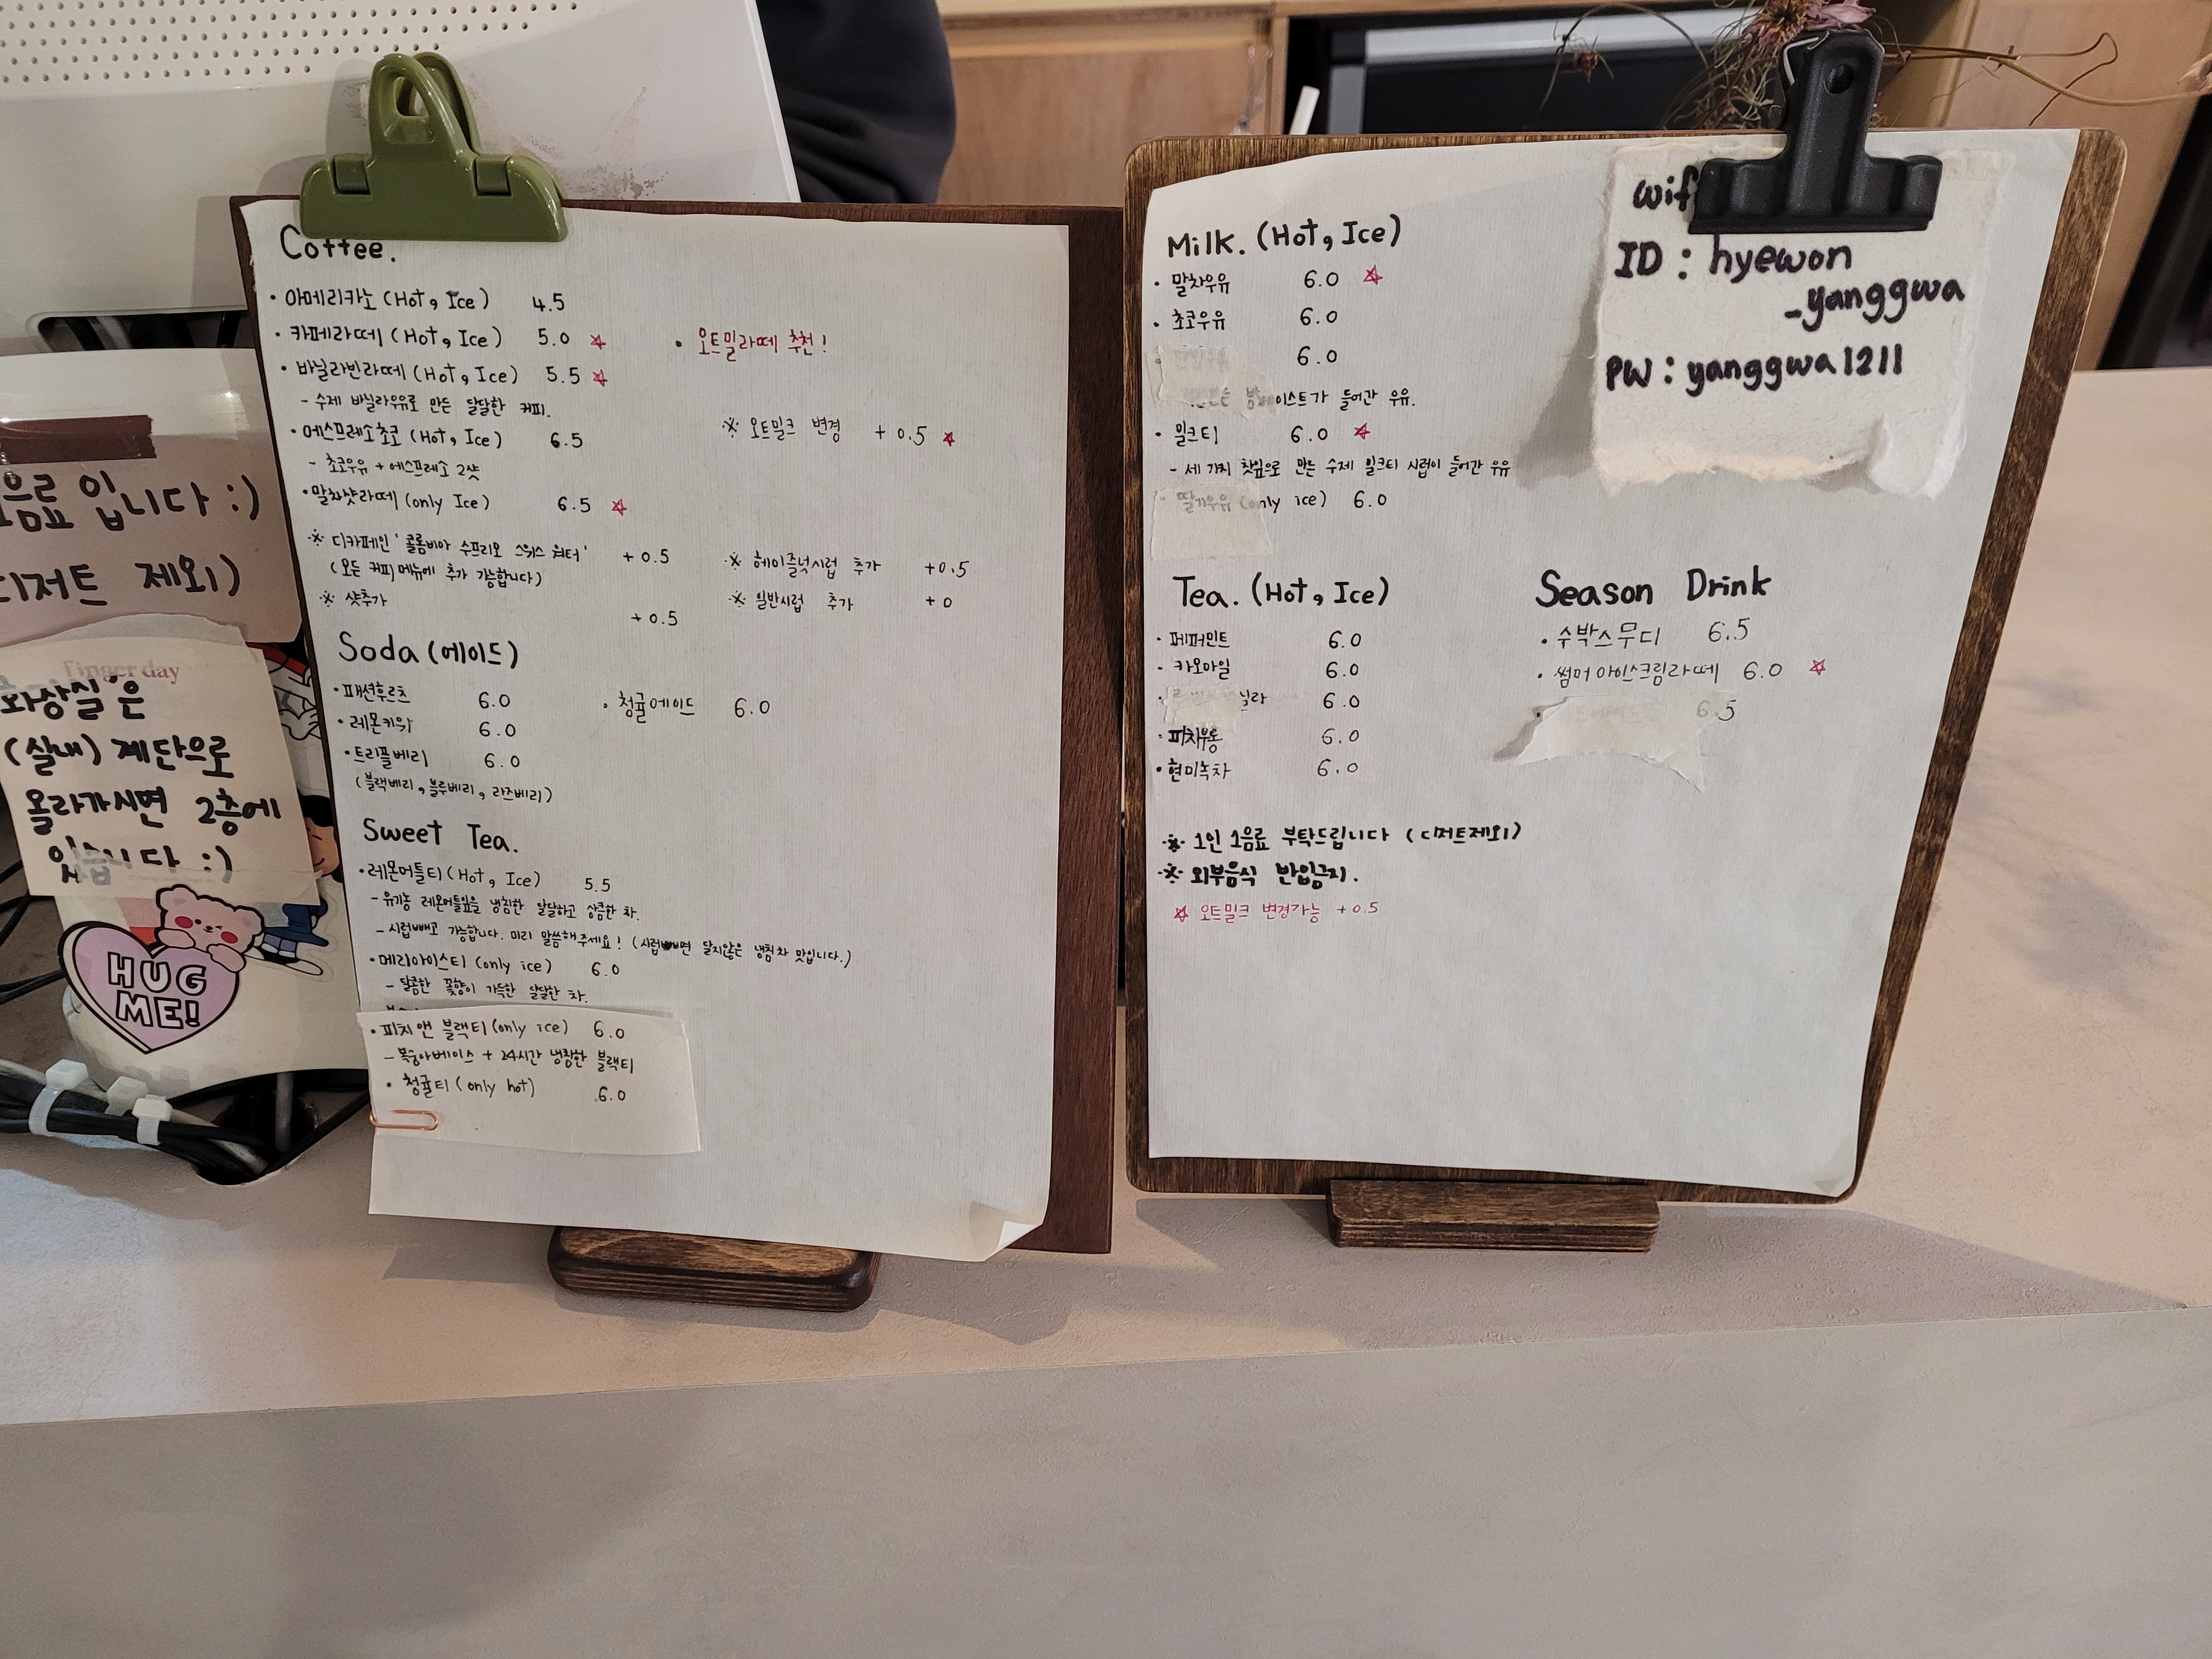 Coffee.
· 아메리카노 (Hot, Ice) 4.5
· 카페라떼 (Hot, Ice) 5.0 ☆
· 바닐라빈라떼 (Hot, Ice) 5.5 ☆
- 수제 바닐라우유로 만든 달달한 커피.
· 에스프레소초코 (Hot, Ice) 6.5
- 초코우유 + 에스프레소 2샷
· 말차샷라떼 (only Ice) 6.5 ☆
· 오트밀라떼 추천!
※ 오트밀크 변경 +0.5 ☆
※ 디카페인 '콜롬비아 수프리모 스위스 워터' +0.5
(모든 커피메뉴에 추가 가능합니다)
※ 샷추가 +0.5
※ 헤이즐넛시럽 추가 +0.5
※ 일반시럽 추가 +0
Soda (에이드)
· 패션후르츠 6.0
· 레몬키위 6.0
· 트리플베리 6.0
(블랙베리, 블루베리, 라즈베리)
· 청귤에이드 6.0
Sweet Tea.
· 레몬머틀티 (Hot, Ice) 5.5
- 유기농 레몬머틀잎을 냉침한 달달하고 상큼한 차.
- 시럽빼고 가능합니다. 미리 말씀해주세요! (시럽빼면 달지않은 냉침차 맛입니다.)
· 메리아이스티 (only ice) 6.0
- 달콤한 꽃향이 가득한 달달한 차.
· 피치앤 블랙티 (only ice) 6.0
- 복숭아베이스 + 24시간 냉침한 블랙티
· 청귤티 (only hot) 6.0
Milk. (Hot, Ice)
· 말차우유 6.0 ☆
· 초코우유 6.0
6.0
이스트가 들어간 우유.
· 밀크티 6.0 ☆
- 세 가지 찻잎으로 만든 수제 밀크티 시럽이 들어간 우유
· 딸기우유 (only ice) 6.0
wif
ID : hyewon
_yanggwa
PW : yanggwa1211
Tea. (Hot, Ice)
· 페퍼민트 6.0
· 카모마일 6.0
닐라 6.0
· 피치우롱 6.0
· 현미녹차 6.0
Season Drink
· 수박스무디 6.5
· 썸머아이스크림라떼 6.0 ☆
6.5
※ 1인 1음료 부탁드립니다 (디저트제외)
※ 외부음식 반입금지.
☆ 오트밀크 변경가능 +0.5
음료 입니다 :)
디저트 제외)
finger day
화장실은
(실내) 계단으로
올라가시면 2층에
있습니다 :)
HUG
ME!